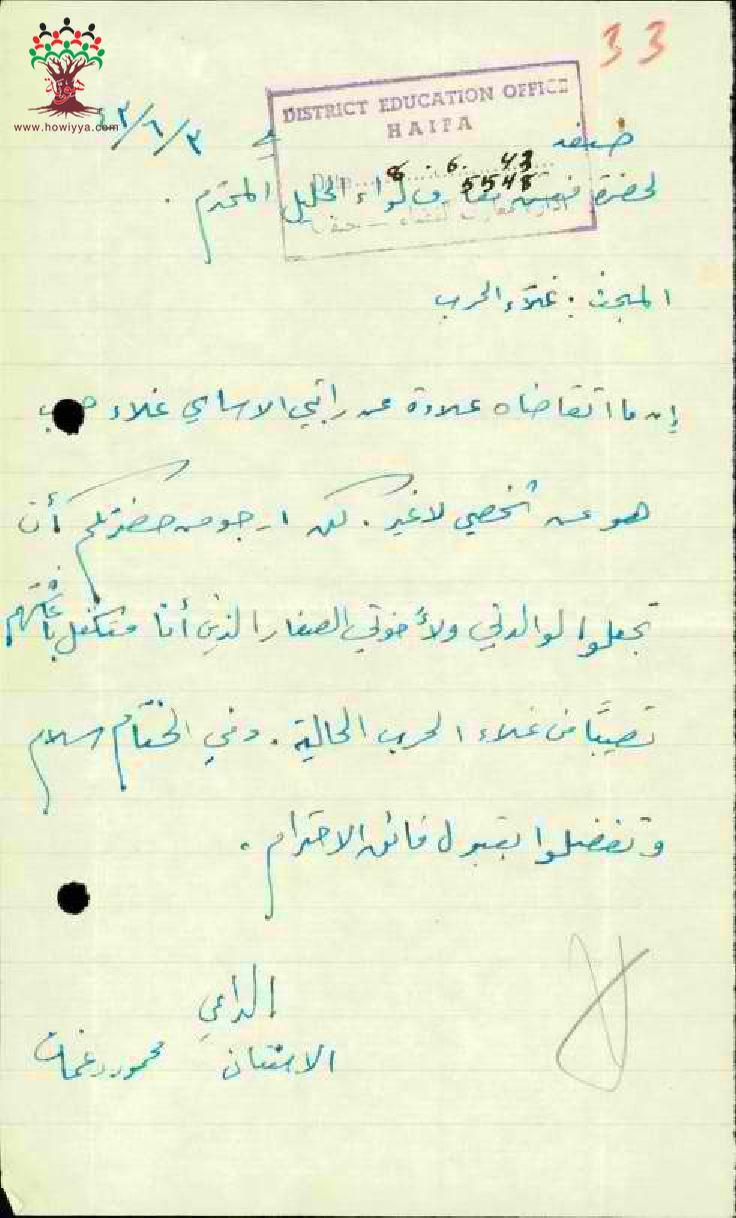 33
هوية
www.howiyya.com
٤٣/٦/٣
DISTRICT EDUCATION OFFICE
HAIFA
8.6.43
5548
لحضرة مفتش معارف لواء الجليل المحترم .
المبحث : غلاء الحرب
إن ما اتقاضاه علاوة عن راتبي الاساسي غلاء حرب
هو عن شخصي لا غير . لكن ارجو من حضرتكم أن
تجعلوا لوالدتي ولأخوتي الصغار الذين أنا متكفل بإعالتهم
نصيبًا من غلاء الحرب الحالية . وفي الختام سلام
وتفضلوا بقبول فائق الاحترام .
الداعي
محمود